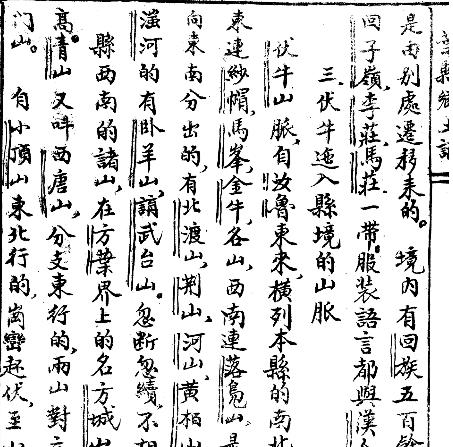 葉縣鄉土誌
是由别處遷移来的。境内有回族五百餘
回子嶺,李莊,馬莊,一帶。服装語言都與漢
三、伏牛迤入縣境的山脈
伏牛山脈,自汝魯東來,横列本縣的南北
東連紗帽,馬峯,金牛,各山,西南連落鳧山,是
向東南分出的,有北渡山,荆山,河山,黄柏山
滍河的有卧羊山,請武台山。忽断忽續,不相
縣西南的諸山,在方葉界上的名方城山
高。青山又叫西唐山,分支東行的,兩山對
门山。自小顶山東北行的,崗巒起伏,至